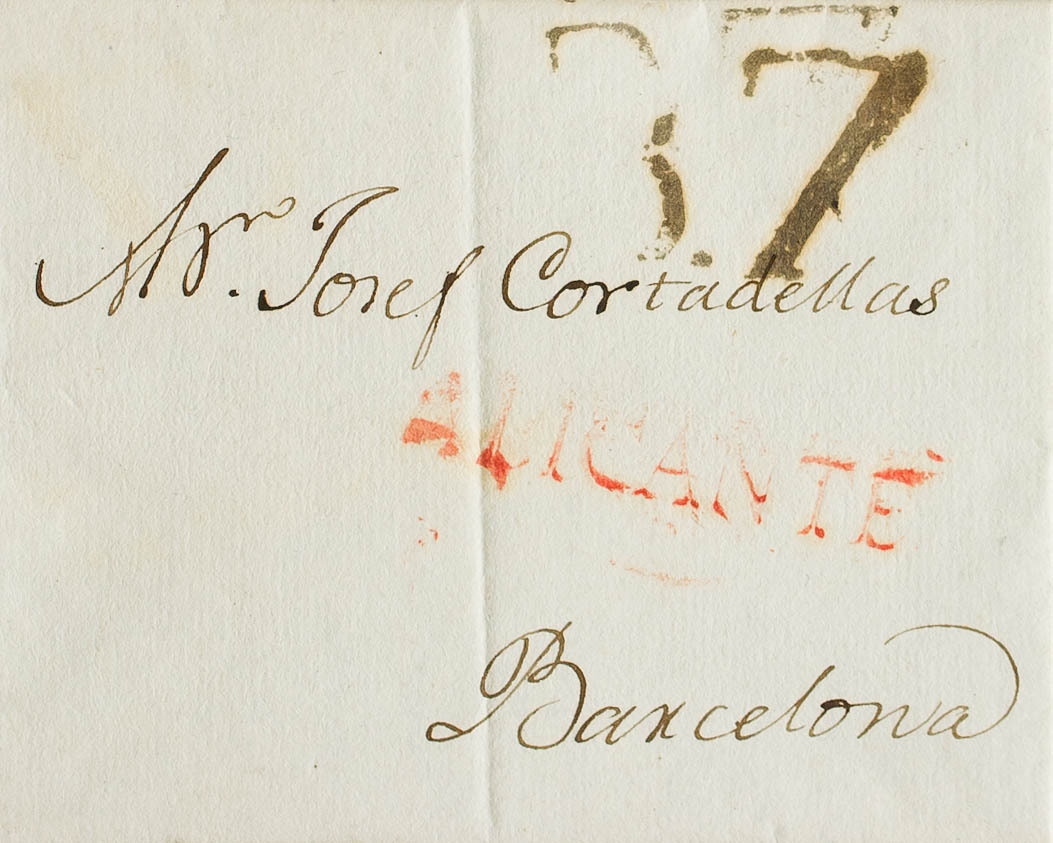 37
Mr. Josef Cortadellas
ALICANTE
Barcelona